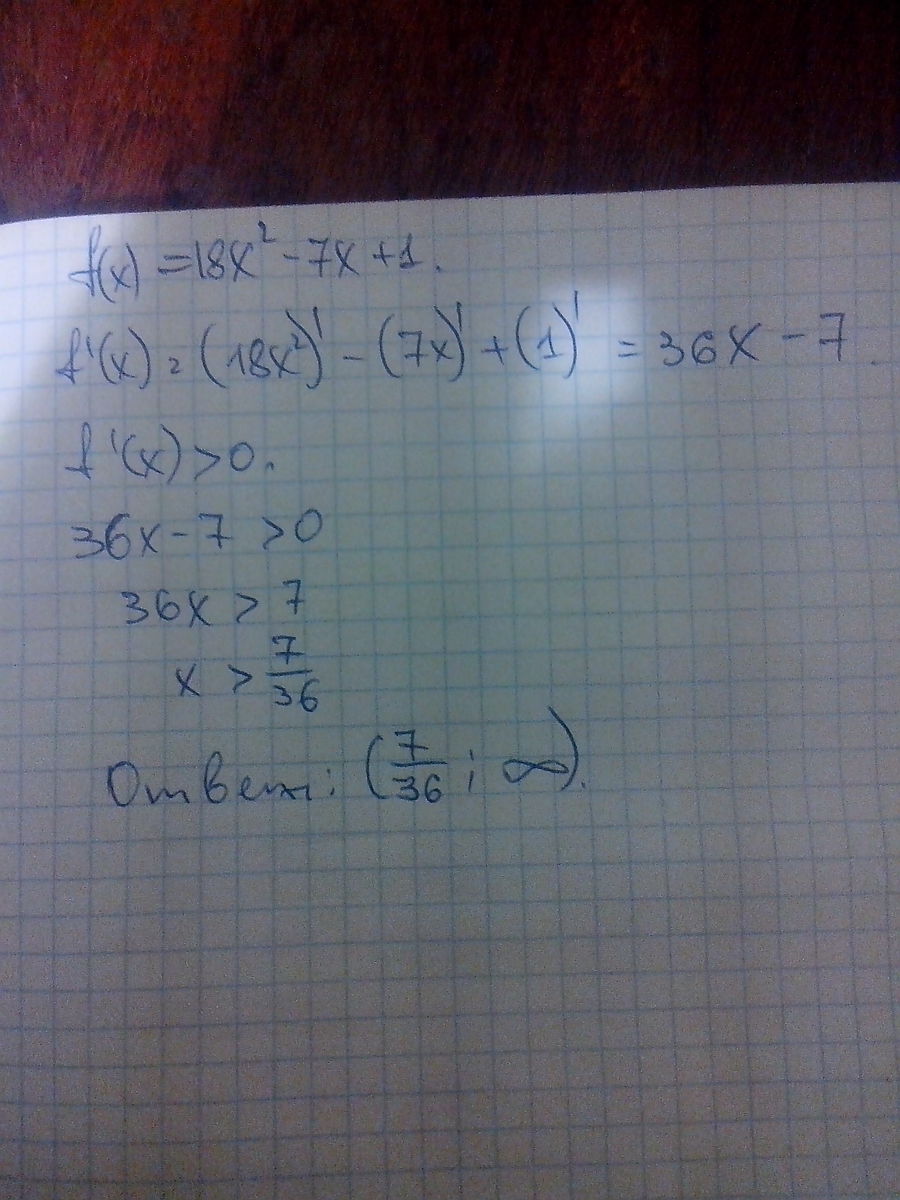 f(x) = 18x² - 7x + 1.
f'(x) = (18x²)' - (7x)' + (1)' = 36x - 7.
f'(x) > 0.
36x - 7 > 0
36x > 7
x > 7/36
Ответ: (7/36 ; ∞).